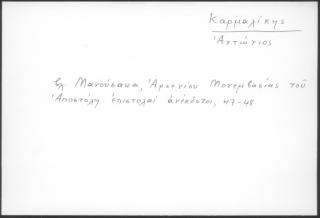 Καρμαλίκης
Ἀντώνιος
Βλ Μανούσακα, Ἀρσενίου Μονεμβασίας τοῦ
Ἀποστόλη ἐπιστολαί ἀνέκδοτοι, 47-48